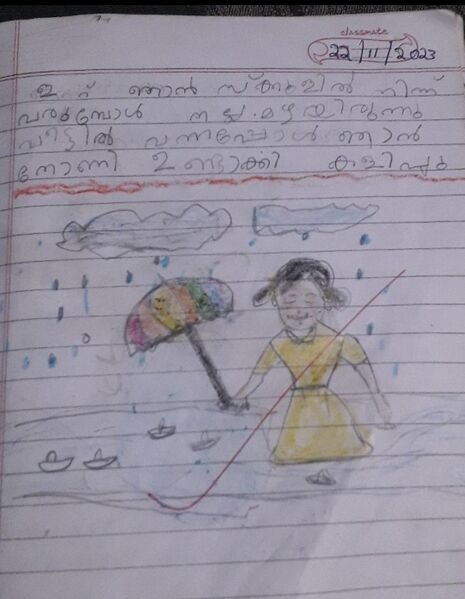 classmate
22/11/2023
ഇന്ന് ഞാൻ സ്കുളിൽ നിന്ന്
വരുമ്പോൾ നല്ല മഴയിരുന്നു
വീട്ടിൽ വന്നപ്പോൾ ഞാൻ
തോണി ഉണ്ടാക്കി കളിച്ചു